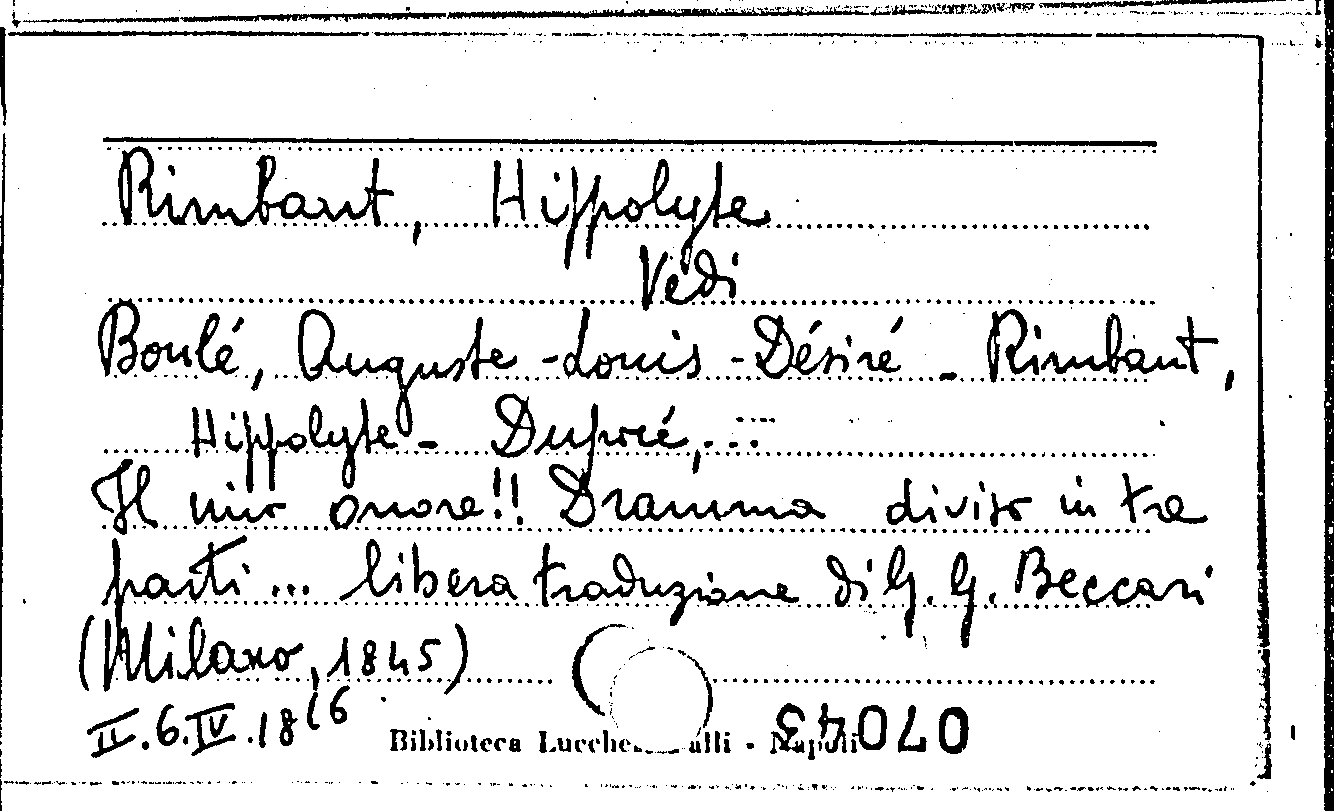 Rimbaut, Hippolyte
Vedi
Boulé, Auguste-Louis-Désiré - Rimbaut,
Hippolyte - Dupré, ...
Il mio onore!! Dramma diviso in tre
parti... libera traduzione di G. G. Beccari
(Milano, 1845)
II.6.IV.18
Biblioteca - Napoli
07043